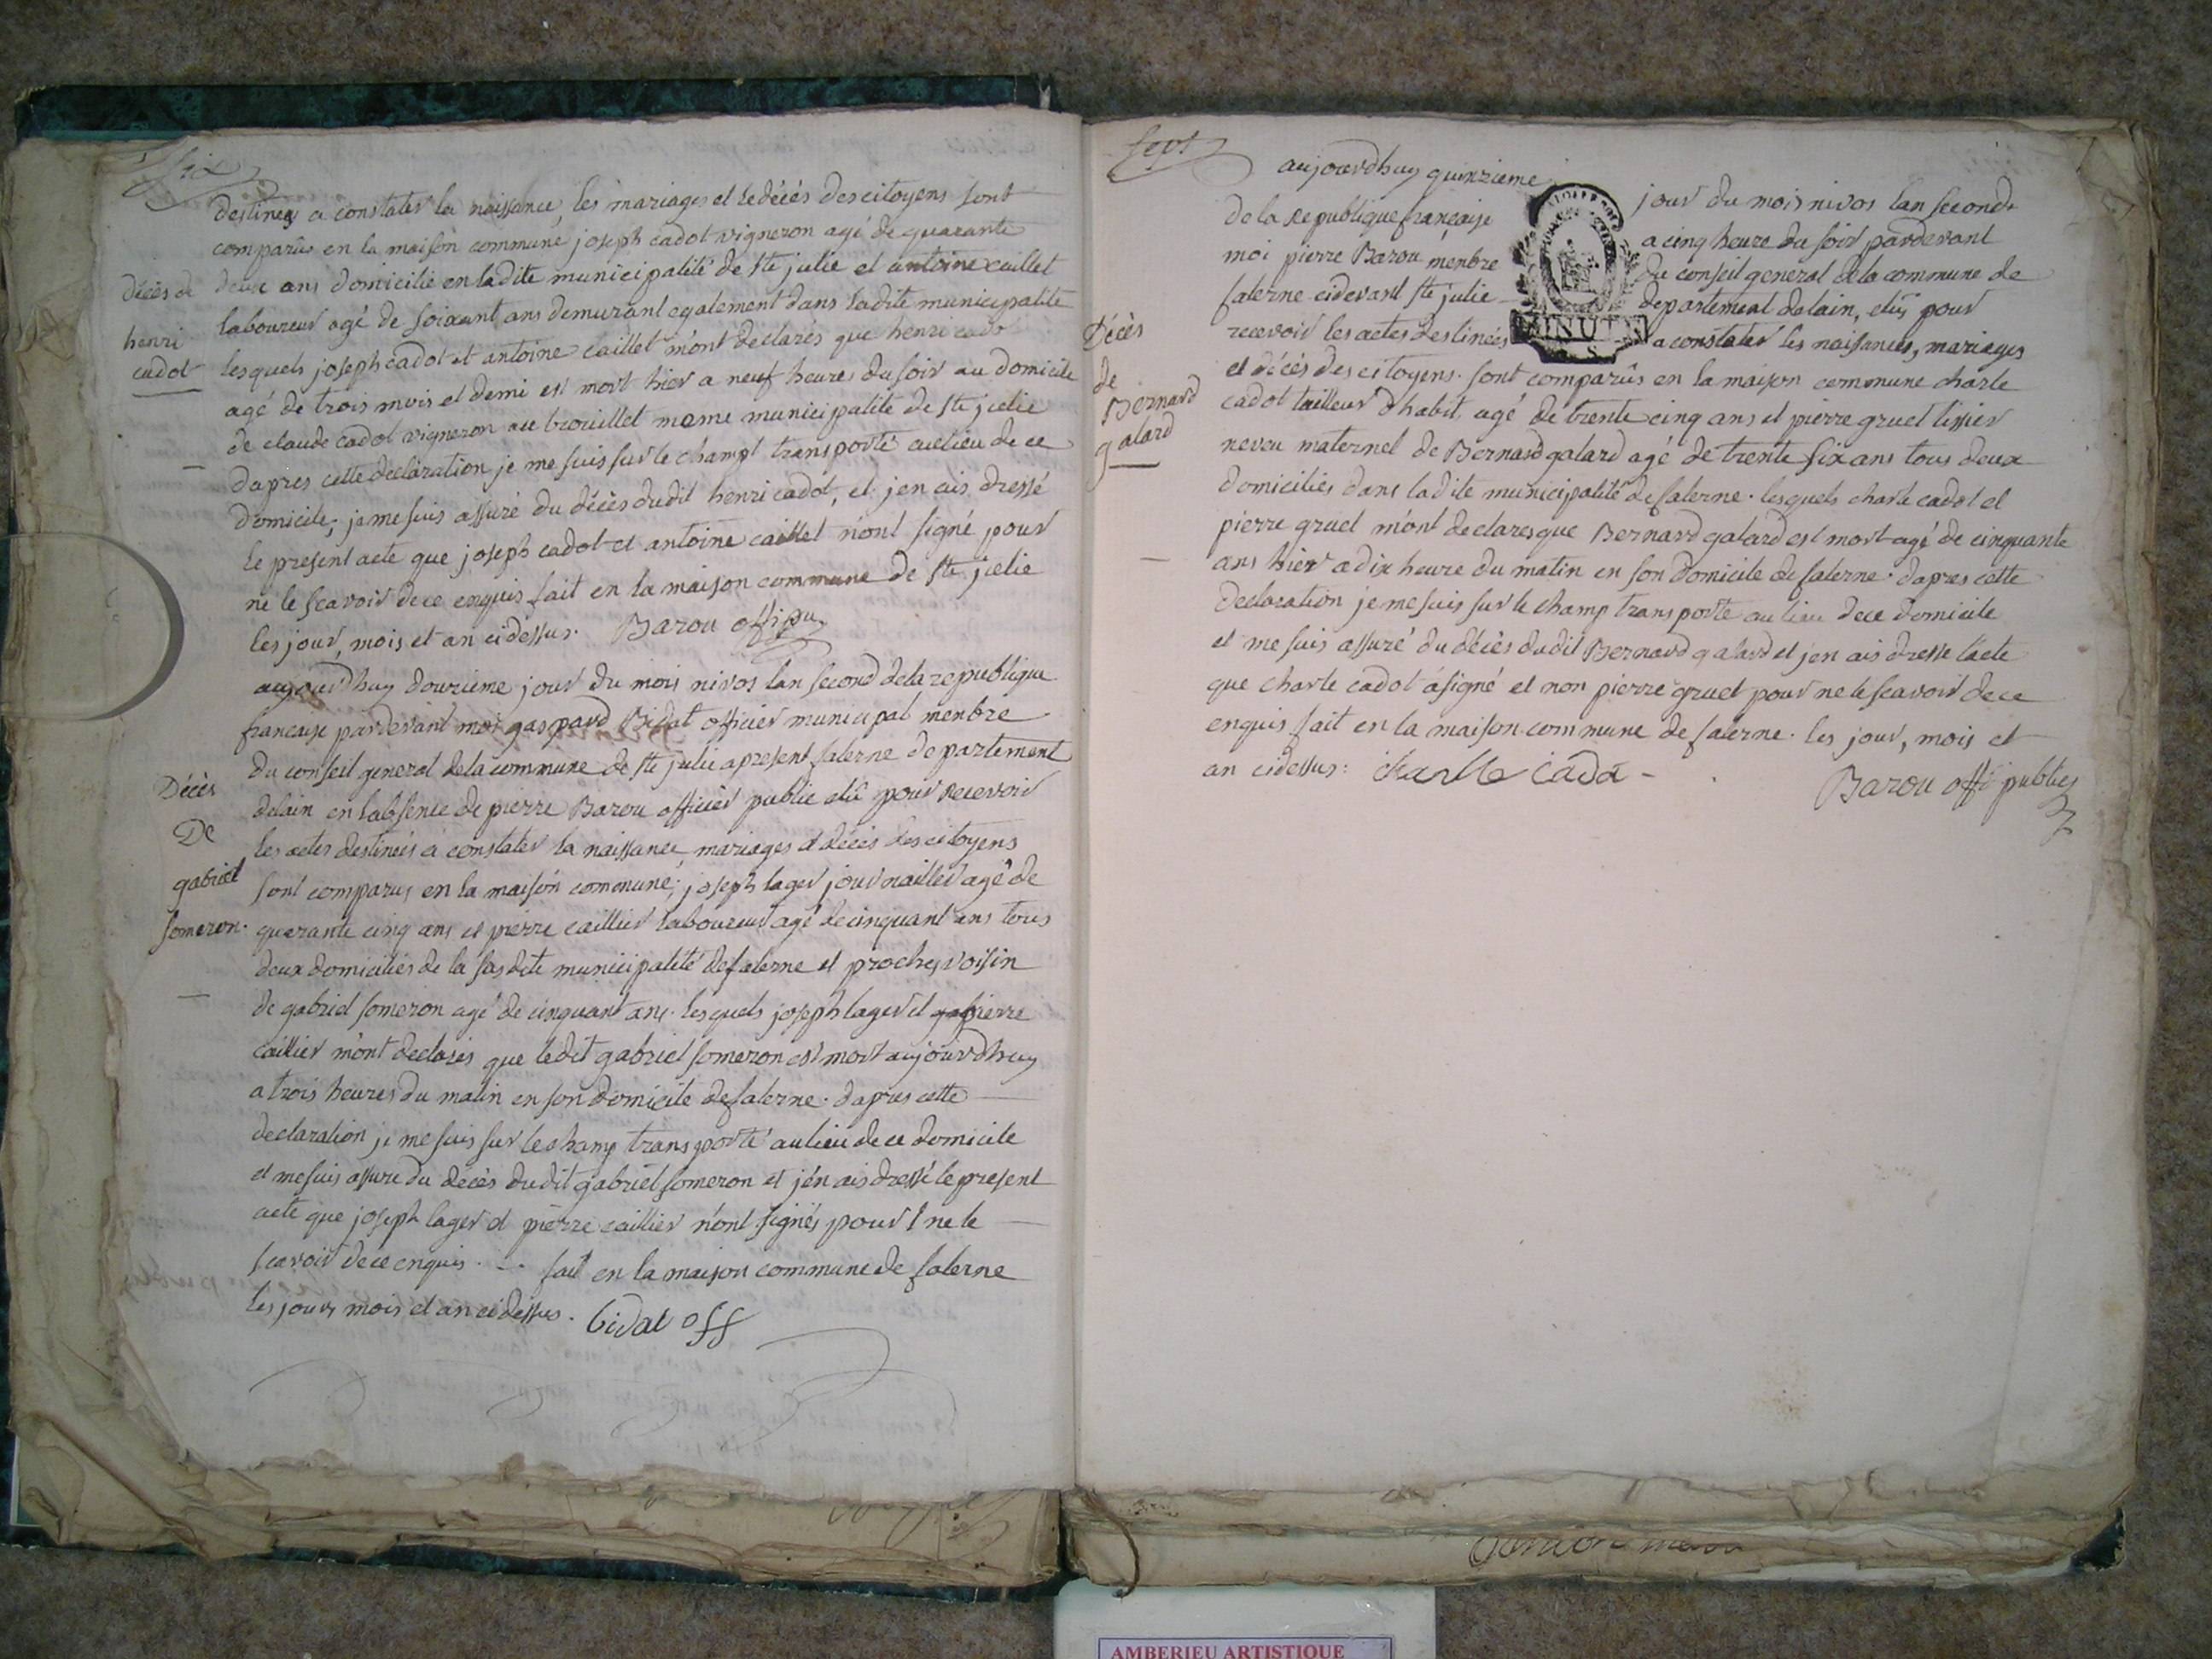 six
destinés a constater la naissance, les mariages et le décès des citoyens sont
comparûs en la maison commune joseph cadot vigneron agé de quarante
deux ans domicilie en ladite municipalité de ste julie et antoine caillet
laboureur agé de soixant ans demurant egalement dans ladite municipalité
lesquels joseph cadot et antoine caillet m'ont declarés que henri cadot
agé de trois mois et demi est mort hier a neuf heures du soir au domicile
de claude cadot vigneron au trouillet mesme municipalité de ste julie
dapres cette declaration je me suis sur le champt transporté au lieu de ce
domicile, je me suis assuré du décès dudit henri cadot, et jen ais dressé
le present acte que joseph cadot et antoine caillet n'ont signé pour
ne le scavoir de ce enquis fait en la maison commune de ste julie
les jour, mois et an cidessus. Barou offi pu
Décès de
henri
cadot
aujourdhuy douzieme jour du mois nivos lan second dela republique
francaise pardevant moi gaspard Bidat officier municipal menbre
du conseil general dela commune de ste julie apresent salerne departement
delain en labsence de pierre Barou officier public elû pour recevoir
les actes destinés a constater la naissance, mariages et décès des citoyens
sont comparus en la maison commune; joseph lager journaillier agé de
quarante cinq ans et pierre caillier laboureur agé de cinquant ans tous
deux domiciliés de la susdite municipalité de salerne et proches voisin
de gabriel someron agé de cinquant ans. lesquels joseph lager et pierre
caillier m'ont declarés que ledit gabriel someron est mort aujourdhuy
a trois heures du matin en son domicile de salerne. dapres cette
declaration je me suis sur le champ transporté au lieu de ce domicile
et me suis assuré du décès dudit gabriel someron et jén ais dressé le present
acte que joseph lager et pierre caillier n'ont signés pour ne le
scavoir de ce enquis. fait en la maison commune de salerne
les jours mois et an cidessus. bidat off
Décès
De
gabriel
someron.
sept
aujourdhuy quinzieme jour du mois nivos lan second
de la republique française a cinq heure du soir pardevant
moi pierre Barou menbre du conseil general de la commune de
salerne cidevant ste julie departement delain, elû pour
recevoir les actes destinés a constater les naissances, mariages
et décès des citoyens. sont comparûs en la maison commune charle
cadot tailleur d'habit agé de trente cinq ans et pierre gruel tissier
neveu maternel de Bernard galard agé de trente six ans tous deux
domiciliés dans ladite municipalité de salerne. lesquels charle cadot et
pierre gruel m'ont declares que Bernard galard est mort agé de cinquante
ans hier a dix heure du matin en son domicile de salerne. dapres cette
declaration je me suis sur le champ transporté au lieu de ce domicile
et me suis assuré du décès dudit Bernard galard et jen ais dresse lacte
que charle cadot a signé et non pierre gruel pour ne le scavoir de ce
enquis fait en la maison commune de salerne. les jour, mois et
an cidessus: charle cada
Barou offi public
Décès
de
Bernard
galard
MINUTE
AMBERIEU ARTISTIQUE